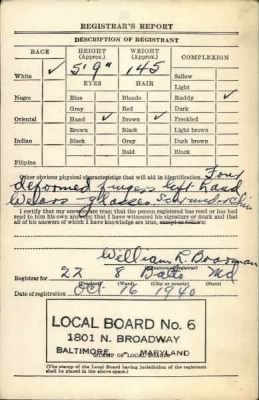 REGISTRAR'S REPORT
DESCRIPTION OF REGISTRANT
RACE HEIGHT (Approx.) WEIGHT (Approx.) COMPLEXION
5' 9" 145
White ✓ EYES HAIR Sallow
Light
Negro Blue Blonde Ruddy ✓
Gray Red Dark
Oriental Hazel ✓ Brown ✓ Freckled
Brown Black Light brown
Indian Black Gray Dark brown
Bald Black
Filipino
Other obvious physical characteristics that will aid in identification Four
deformed fingers left hand
Wears glasses Scar under chin
I certify that my answers are true; that the person registered has read or has had
read to him his own answers; that I have witnessed his signature or mark and that
all of his answers of which I have knowledge are true, except as follows:
William L. Boarman
(Signature of registrar)
Registrar for 27 8 Balto Md
(Precinct) (Ward) (City or county) (State)
Date of registration Oct 16 1940
LOCAL BOARD No. 6
1801 N. BROADWAY
BALTIMORE, MARYLAND
(STAMP OF LOCAL BOARD)
(The stamp of the Local Board having jurisdiction of the registrant
shall be placed in the above space.)